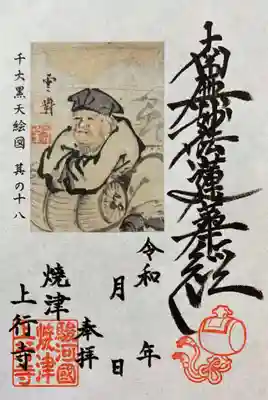 南無妙法蓮華経
令和　年
月　日
奉拝
焼津
上行寺
駿河國
焼津
上行寺
千大黒天絵図 其の十八